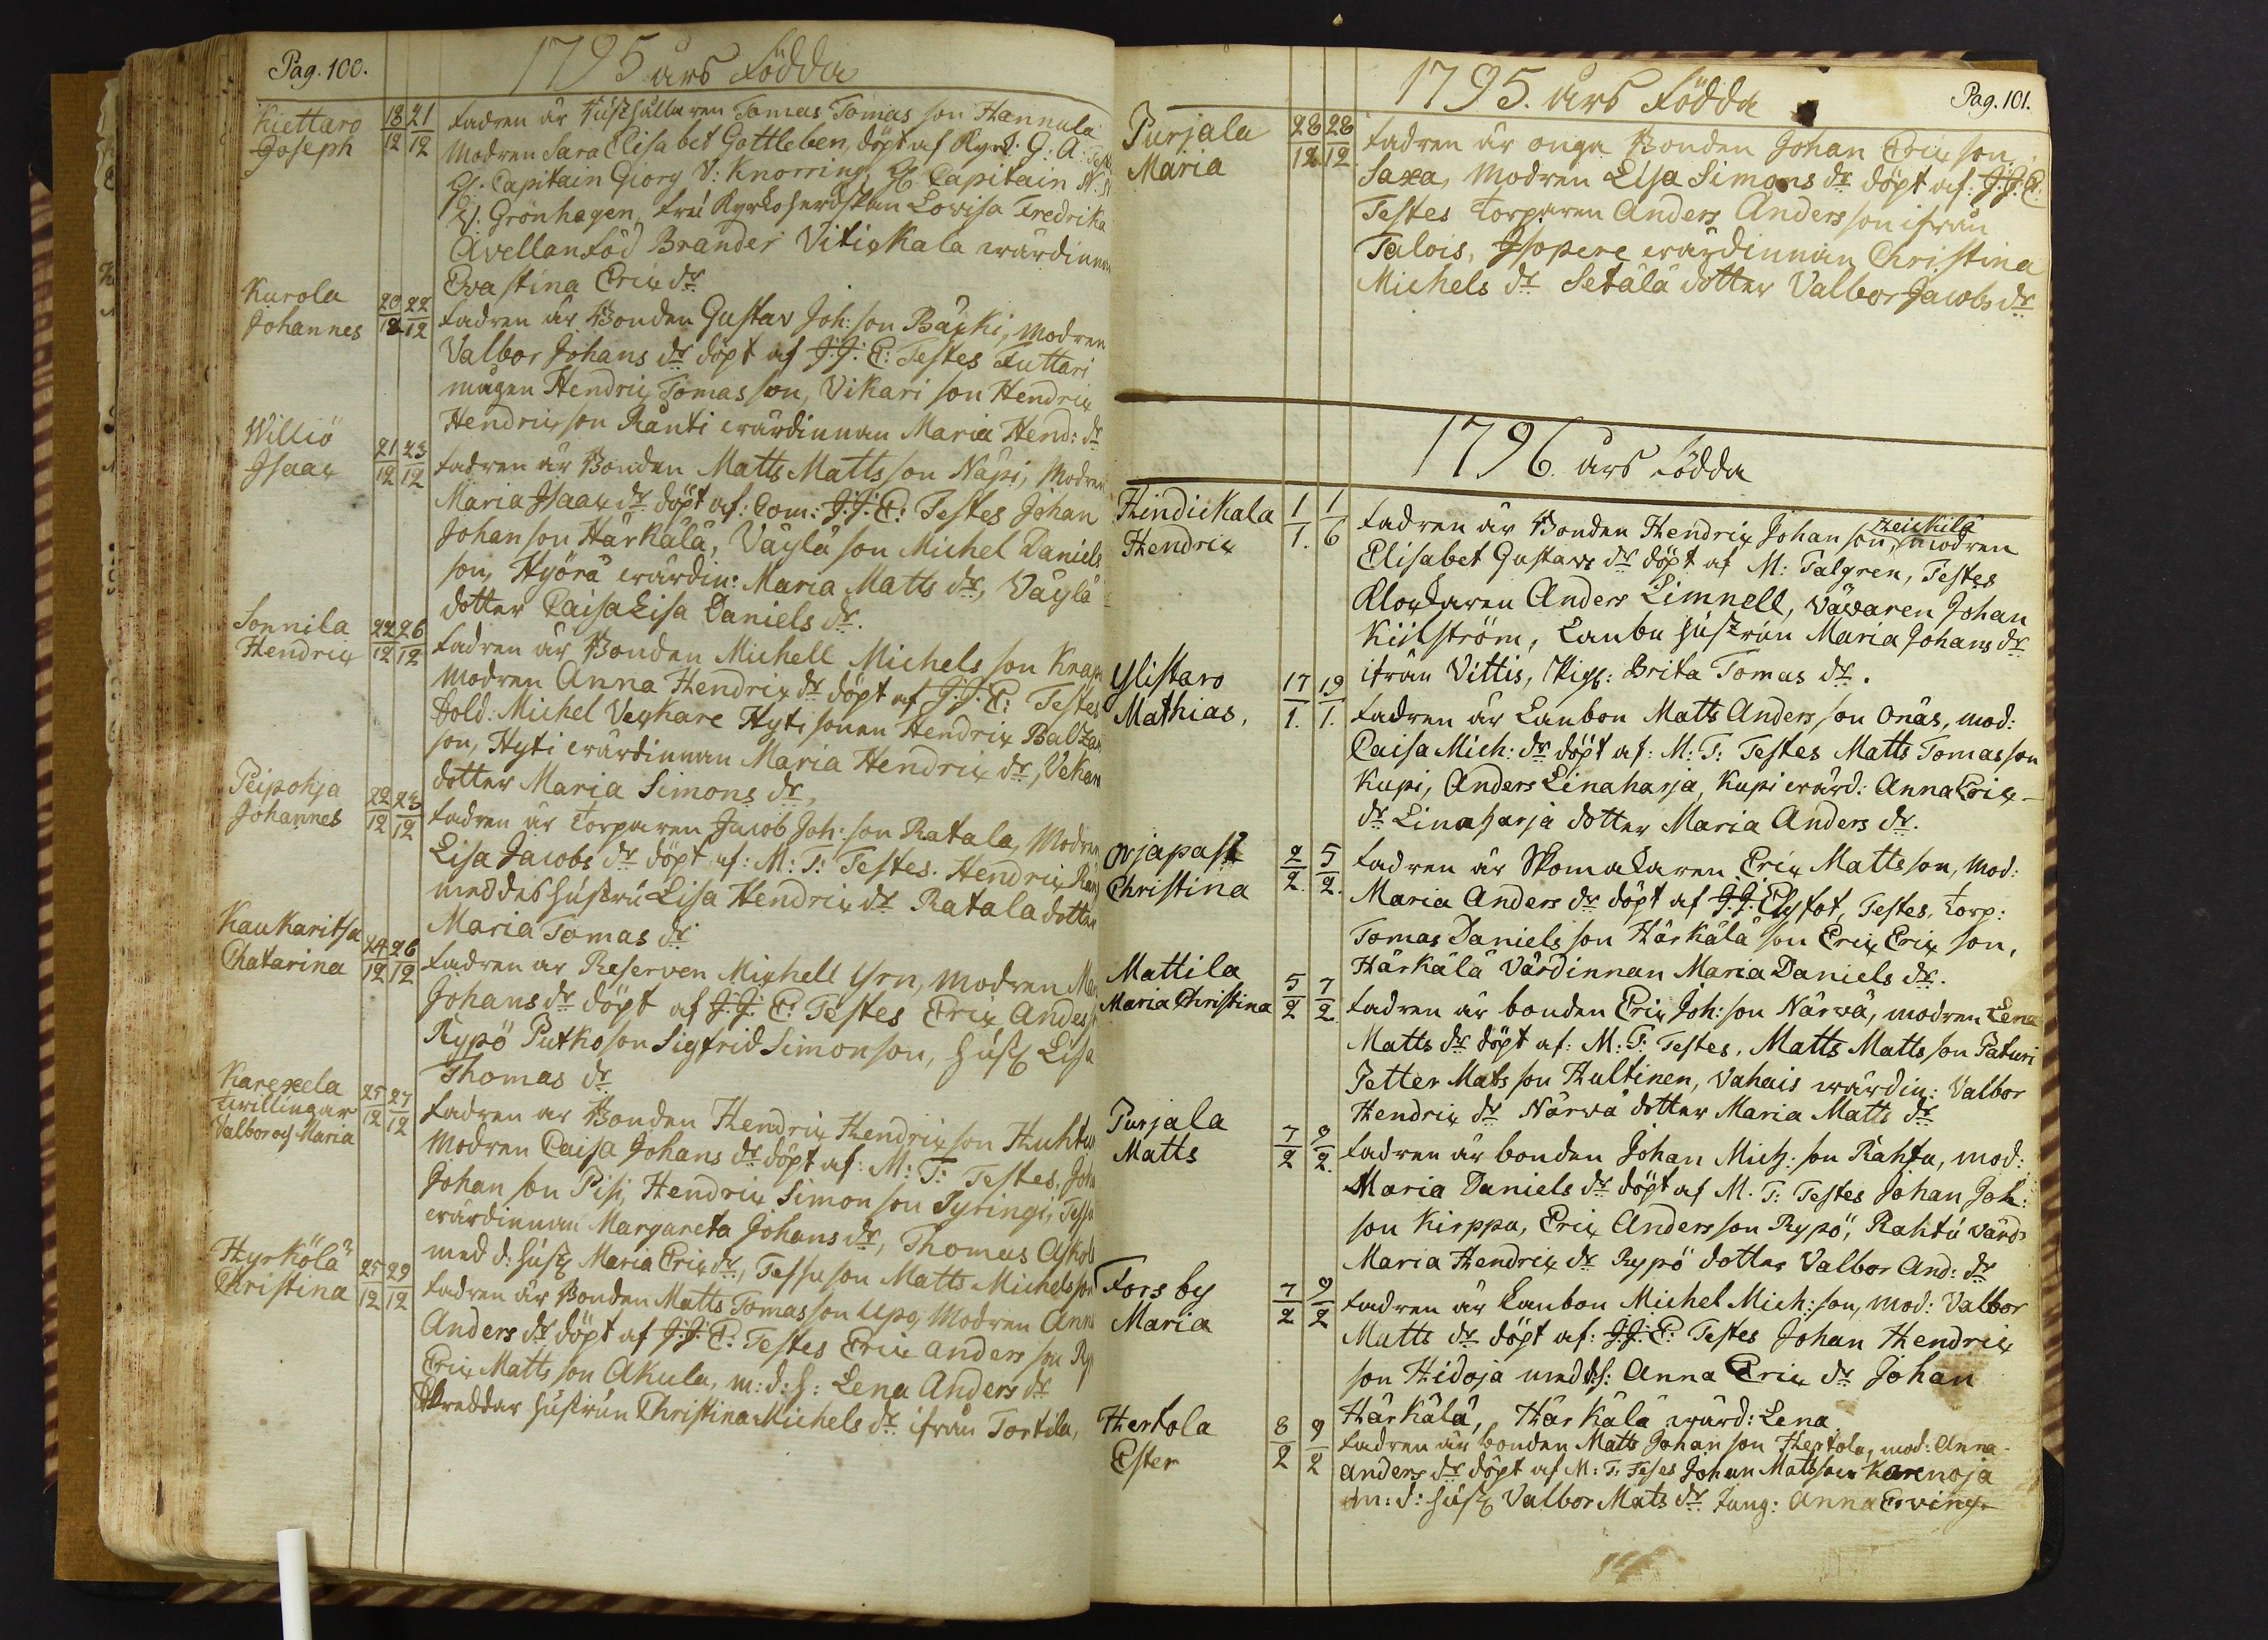 Pag. 100.
1795 års Födda
Kiettaro
Joseph
18/12 21/12
Fadren är Tomas Tomas son Hannula
Modren Sara Elisabet Gottleben, döpt af Kyrk: G: A:
Hr. Capitain Giorg V: Knorring, Hr Capitain
Grönhagen, fru Lovisa Fredrika
Avellan föd Brander Vitickala wärdinnan
Eva Stina Erix dr
Karola
Johannes
20/12 22/12
Fadren är Bonden Gustav Joh: son Bäcki, Modren
Valbor Johans dr döpt af J:J: E: Testes Futtari
mågen Hendrix Tomas son, Vikari son Hendrix
Hendrix son Ränti wärdinnan Maria Hend: dr
Williö
Isaax
21/12 23/12
Fadren är Bonden Matts Matts son Näpi, Modren
Maria Isaax dr döpt af: Com: J:J: E: Testes Johan
Johan son Härkälä, Väylä son Michel Daniels
son, Hyörä wärdin: Maria Matts dr, Väylä
dotter Caisa Lisa Daniels dr.
Sonnila
Hendrix
22/12 26/12
Fadren är Bonden Michell Michels son
Modren Anna Hendrix dr döpt af J:J: E: Testes
Sold: Michel Veckare Hyti sonen Hendrix Baltzar
son, Hyti wärdinnan Maria Hendrix dr,
dotter Maria Simons dr,
Peipohja
Johannes
22/12 23/12
Fadren är torparen Jacob Joh: son Ratala, Modren
Lisa Jacobs dr döpt af: M: T: Testes. Hendrix
med des hustru Lisa Hendrix dr Ratala dotter
Maria Tomas dr
Kaukaritsa
Chatarina
24/12 26/12
Fadren är Reserven Michell Yrn, Modren
Johans dr döpt af J:J: E: Testes Erix Anders
Rypö Putko son Sigfrid Simon son, Lisa
Thomas dr
Karexela
twillingar
Valbor och Maria
25/12 27/12
Fadren är Bonden Hendrix Hendrix son
Modren Caisa Johans dr döpt af: M: T: Testes,
Johan son Pisi, Hendrix Simon son Pyringi,
wärdinnan Margareta Johans dr, Thomas
med d: Maria Erix dr, son Matts Michels son
Hyrkölä
Christina
25/12 29/12
Fadren är Bonden Matts Tomas son Upo, Modren Anna
Anders dr döpt af J:J: E: Testes Erix anders son
Erix Matts son Akula, m: d: h: Lena Anders dr
Skreddar hustrun Christina Michels dr ifrån Tortila,
1795. års Födda
Pag. 101.
Purjala
Maria
28/12 28/12
Fadren är unga Bonden Johan Erix son
Saxa, Modren Lisa Simons dr döpt af: J:J: E.
Testes torparen Anders Anders son ifrån
Talois, Isopere wärdinnan Christina
Michels dr Setälä dotter Valbor Jacobs dr
1796. års födda
Hindickala
Hendrix
1/1. 1/6
Fadren är Bonden Hendrix Johan son, Heickilä modren
Elisabet Gustavs dr döpt af M: Talgren, Testes
Klockaren Anders Limnell, Väwaren Johan
Kiilström, Lanbu hustrun Maria Johans dr
ifrån Vittis, Pig: Brita Tomas dr.
Ylistaro
Mathias,
17/1. 19/1.
Fadren är Lanbon Matts Anders son Onäs, mod:
Caisa Mich: dr döpt af: M: T: Testes Matts Tomas son
Kupi, Anders Linaharja, Kupi wärd: Anna Erix
dr Linaharja dotter Maria Anders dr.
Orjapast
Christina
2/2. 5/2.
Fadren är Skomakaren Erix Matts son, Mod:
Maria Anders dr döpt af J:J: Elgfot, Testes, torp:
Tomas Daniels son Härkälä son Erix Erix son,
Härkälä Värdinnan Maria Daniels dr.
Mattila
Maria Christina
5/2 7/2
Fadren är bonden Erix Joh: son Närwä, modren Lena
Matts dr döpt af: M: T: Testes, Matts Matts son Paturi
Petter Mats son Hultinen, Vahais wärdin: Valbor
Hendrix dr Närwä dotter Maria Matts dr
Purjala
Matts
7/2 9/2.
Fadren är bonden Johan Mich: son Rahtu, mod:
Maria Daniels dr döpt af M: T: Testes Johan Joh:
son Kirppa, Erix Anders son Rypö, Rahtu Värd:
Maria Hendrix dr Rypö dotter Valbor And: dr
Fors by
Maria
7/2 9/2
Fadren är Lanbon Michel Mich: son, mod: Valbor
Matts dr döpt af: J:J: E: Testes Johan Hendrix
son Hidoja med d:h: Anna Erix dr Johan
Härkälä, Härkälä wärd: Lena
Hertola
Ester
8/2 9/2
Fadren är bonden Matts Johan son Hertola, mod: Anna
Anders dr döpt af M: T: Teses Johan Mats son Karenoja
m: d: Valbor Mats dr Jung: Anna Erving